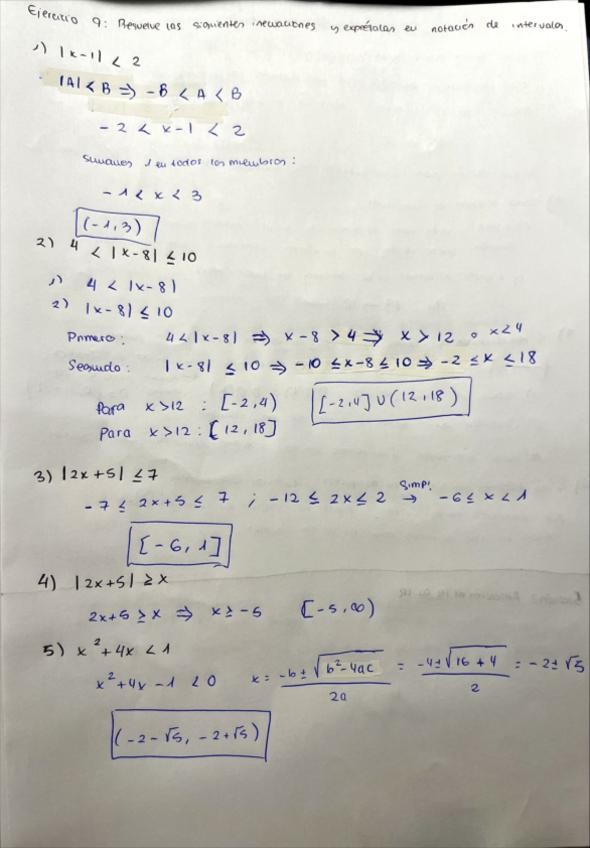 Ejercicio 9: Resuelve las siguientes inecuaciones y exprésalas en notación de intervalos.
1) |x-1| < 2
|A| < B ⇒ -B < A < B
-2 < x-1 < 2
Sumamos 1 en todos los miembros:
-1 < x < 3
(-1,3)
2) 4 < |x-8| ≤ 10
1) 4 < |x-8|
2) |x-8| ≤ 10
Primero: 4 < |x-8| ⇒ x-8 > 4 ⇒ x > 12 o x<4
Segundo: |x-8| ≤ 10 ⇒ -10 ≤ x-8 ≤ 10 ⇒ -2 ≤ x ≤ 18
Para x>12 : [-2,4) [-2,4] ∪ (12,18)
Para x>12 : [12,18]
3) |2x+5| ≤ 7
-7 ≤ 2x+5 ≤ 7 ; -12 ≤ 2x ≤ 2 simp! → -6 ≤ x < 1
[-6, 1]
4) |2x+5| ≥ x
2x+5 ≥ x ⇒ x ≥ -5 [-5,∞)
5) x² + 4x < 1
x² + 4x - 1 < 0 x = -b ± √b²-4ac / 2a = -4 ± √16+4 / 2 = -2 ± √5
(-2-√5, -2+√5)